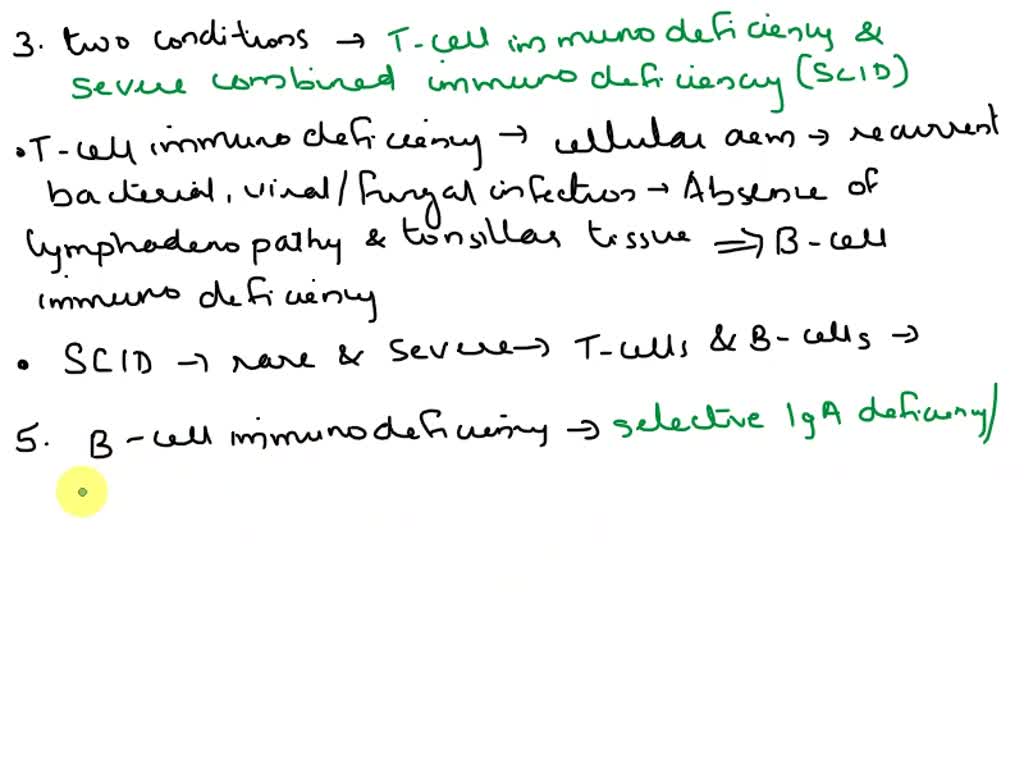 3. two conditions → T-cell immunodeficiency &
severe combined immunodeficiency (SCID)
• T-cell immunodeficiency → cellular arm → recurrent
bacterial, viral/fungal infection → Absence of
lymphadenopathy & tonsillar tissue ⇒ B-cell
immunodeficiency
• SCID → rare & severe → T-cells & B-cells →
5. B-cell immunodeficiency → selective IgA deficiency/